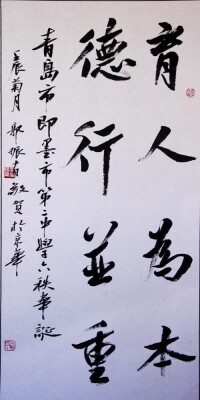 育人為本
德行並重
青島市即墨市第二中學六秩華誕
壬辰菊月 鄭振吉敬賀於京華